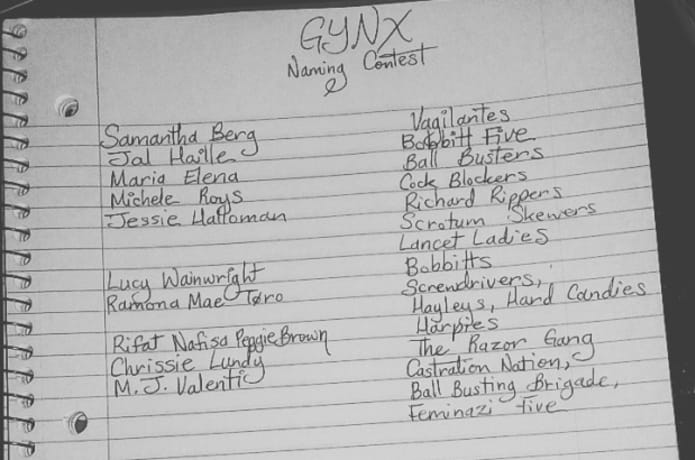 GYNX
Naming Contest
Samantha Berg Vagilantes
Jal Haille Bobbitt Five
Maria Elena Ball Busters
Michele Roys Cock Blockers
Jessie Hattoman Richard Rippers
Scrotum Skewers
Lancet Ladies
Lucy Wainwright Bobbitts
Ramona Mae Toro Screwdrivers,
Hayleys, Hard Candies
Rifat Nafisa Peggie Brown Harpies
Chrissie Lundy The Razor Gang
M. J. Valenti Castration Nation,
Ball Busting Brigade,
Feminazi Five